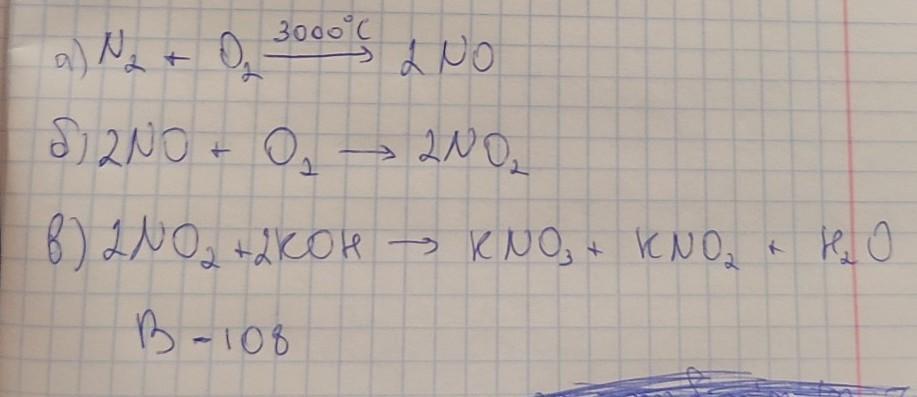 а) N₂ + O₂ 3000°C → 2NO
б) 2NO + O₂ → 2NO₂
в) 2NO₂ + 2KOH → KNO₃ + KNO₂ + H₂O
В - 108